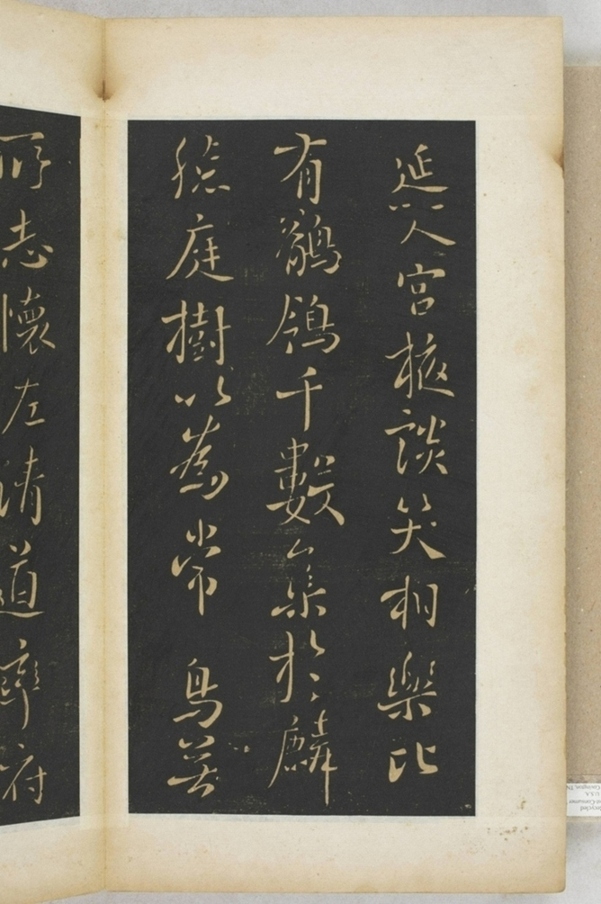 延入宮掖談笑相樂比
有鶺鴒千數集於麟
德庭樹以為常鳥無
所志懷左清道率府